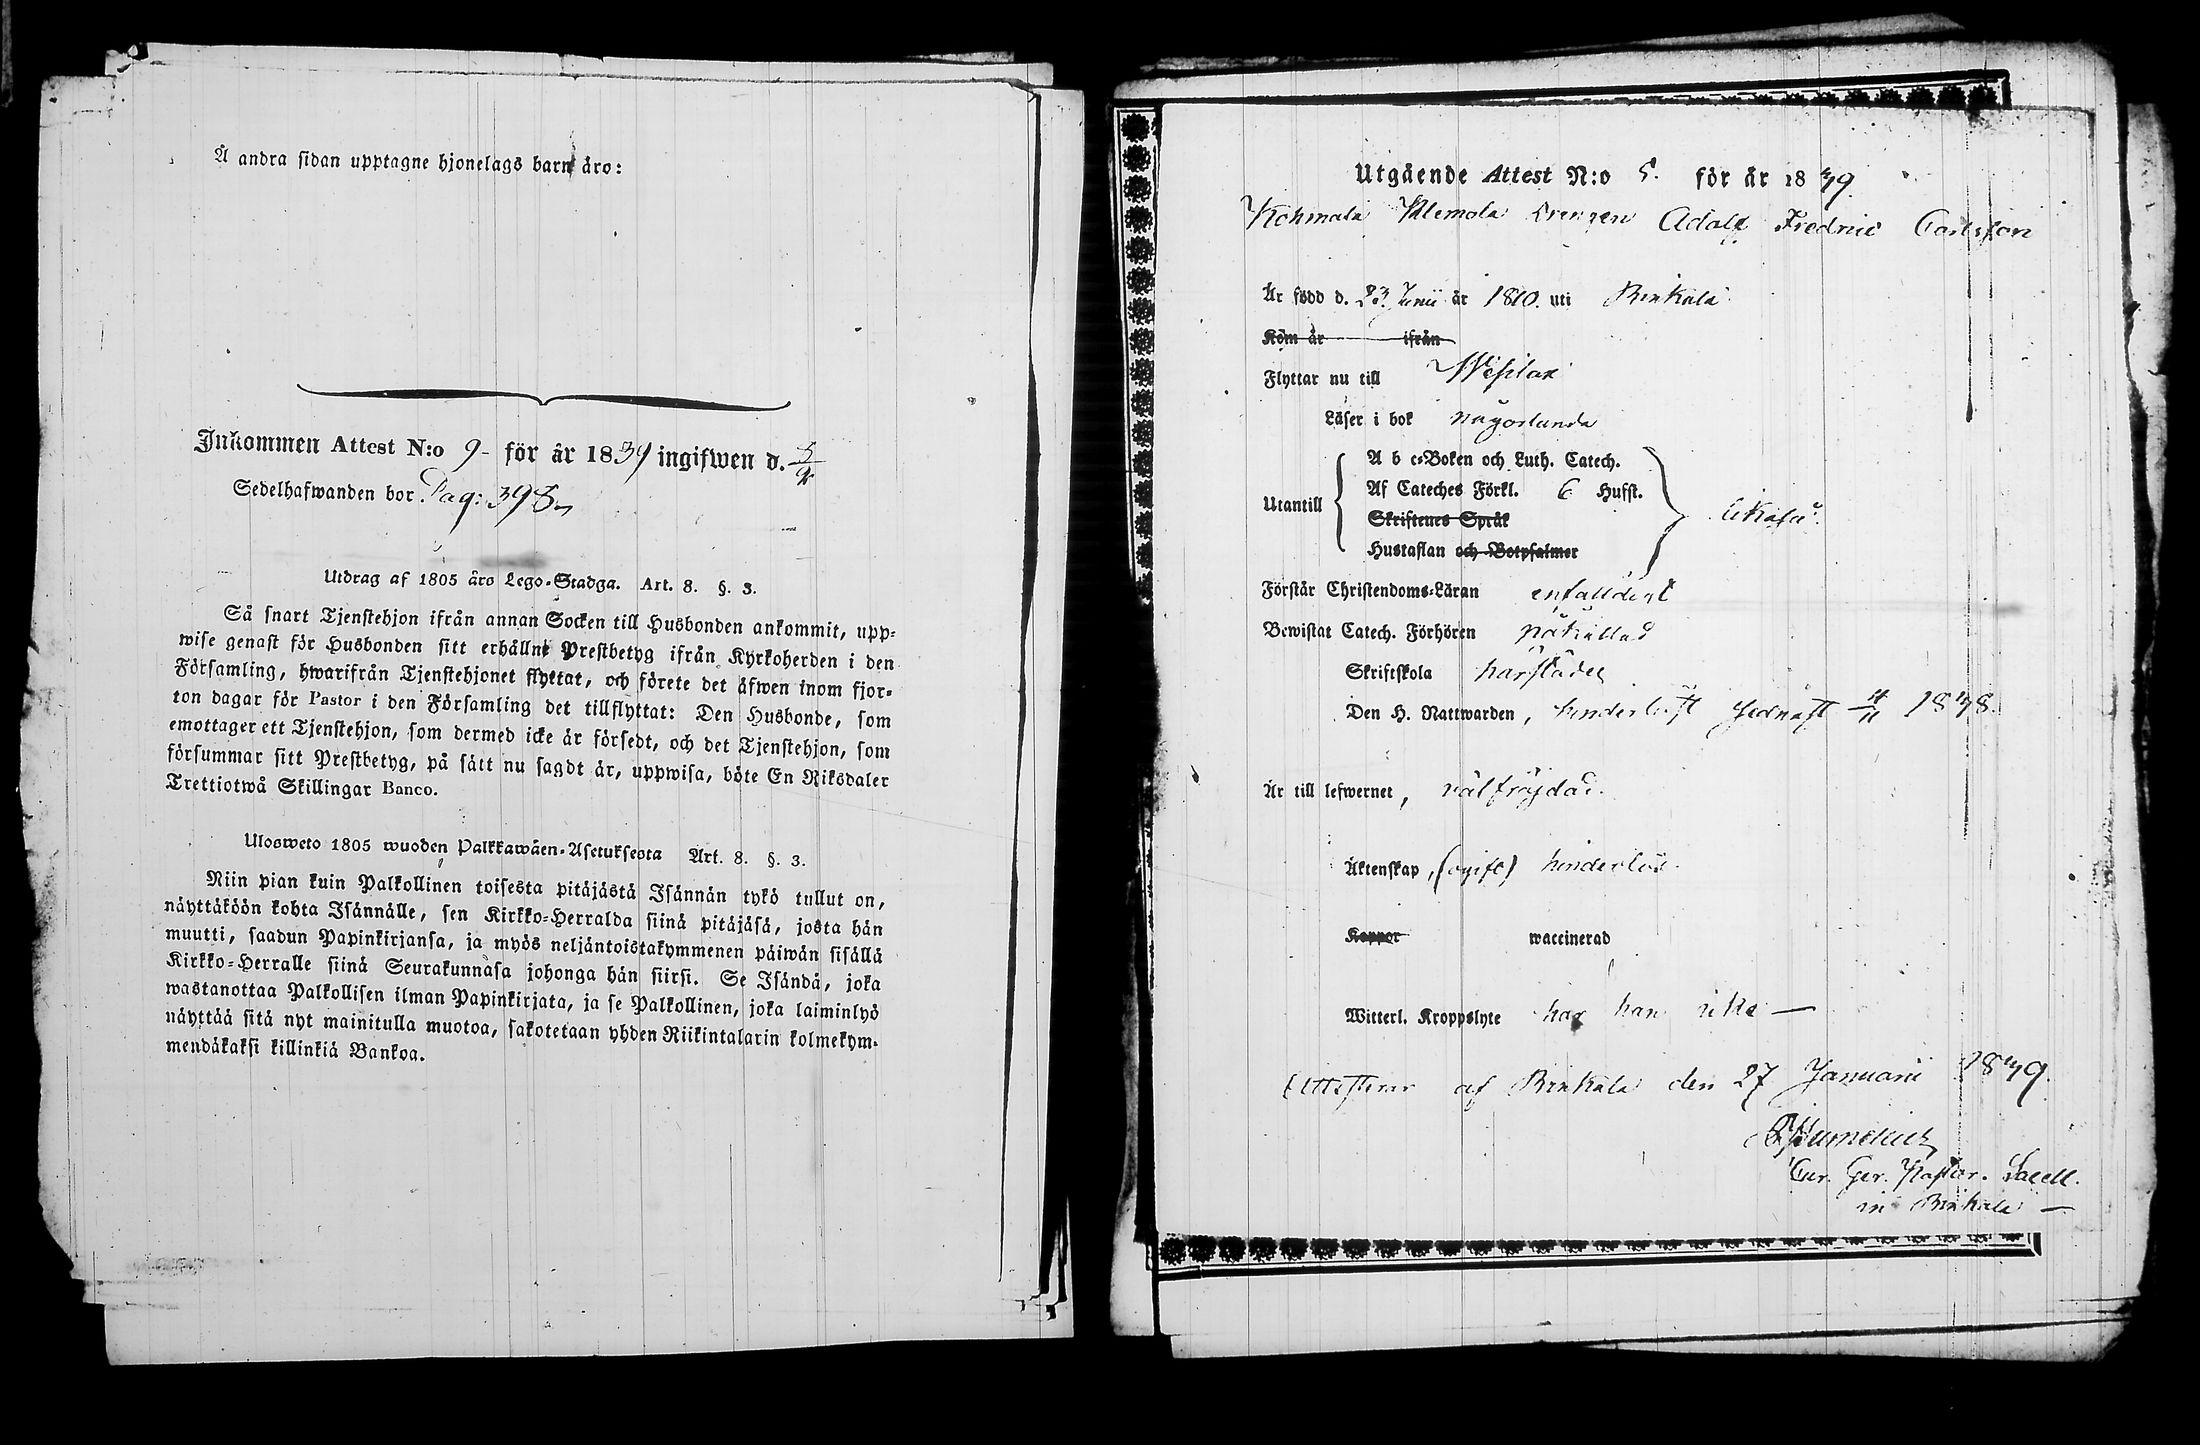 Å andra sidan upptagne hjonelags barn äro:
Inkommen Attest N:o 9- för år 1839 ingifwen d. 5/4
Sedelhafwanden bor Pag: 398
Utdrag af 1805 års Lego-Stadga. Art. 8. §. 3.
Så snart Tjenstehjon ifrån annan Socken till Husbonden ankommit, upp-
wise genast för Husbonden sitt erhållne Prestbetyg ifrån Kyrkoherden i den
Församling, hwarifrån Tjenstehjonet flyttat, och förete det äfwen inom fjor-
ton dagar för Pastor i den Församling det tillflyttat: Den Husbonde, som
emottager ett Tjenstehjon, som dermed icke är försedt, och det Tjenstehjon, som
försummar sitt Prestbetyg, på sätt nu sagdt är, uppwisa, böte En Riksdaler
Trettiotwå Skillingar Banco.
Ulosweto 1805 wuoden Palkkawäen-Asetuksesta Art. 8. §. 3.
Niin pian kuin Palkollinen toisesta pitäjästä Isännän tykö tullut on,
näyttäköön kohta Isännälle, sen Kirkko-Herralda siinä pitäjäsä, josta hän
muutti, saadun Papinkirjansa, ja myös neljäntoistakymmenen päiwän sisällä
Kirkko-Herralle siinä Seurakunnasa johonga hän siirsi. Se Isändä, joka
wastanottaa Palkollisen ilman Papinkirjata, ja se Palkollinen, joka laiminlyö
näyttää sitä nyt mainitulla muotoa, sakotetaan yhden Riikintalarin kolmekym-
mendäkaksi killinkiä Bankoa.
Utgående Attest N:o 5. för år 1839.
Kohmala Klemola Drengen Adolf Fredric Carlsson
Är född d. 23 Junii år 1810. uti Birkala
Kom år ifrån
Flyttar nu till Wesilax
Läser i bok någorlunda
A b c-Boken och Luth. Catech.
Af Cateches Förkl. 6 Hufst.
Utantill
Skriftenes Språk
likaså.
Hustaflan och Botpsalmer
Förstår Christendoms-Läran enfalldigt
Bewistat Catech. Förhören påkallad
Skriftskola härstädes
Den H. Nattwarden, hinderlöst sednast 4/11 1838.
Är till lefwernet, välfräjdad.
Äktenskap, (ogift) hinderlös.
Koppor waccinerad
Witterl. Kroppslyte har han icke —
Attesterar af Birkala den 27 Januarii 1839.
Cur. Ger. Pastor. Sacell.
in Birkala —